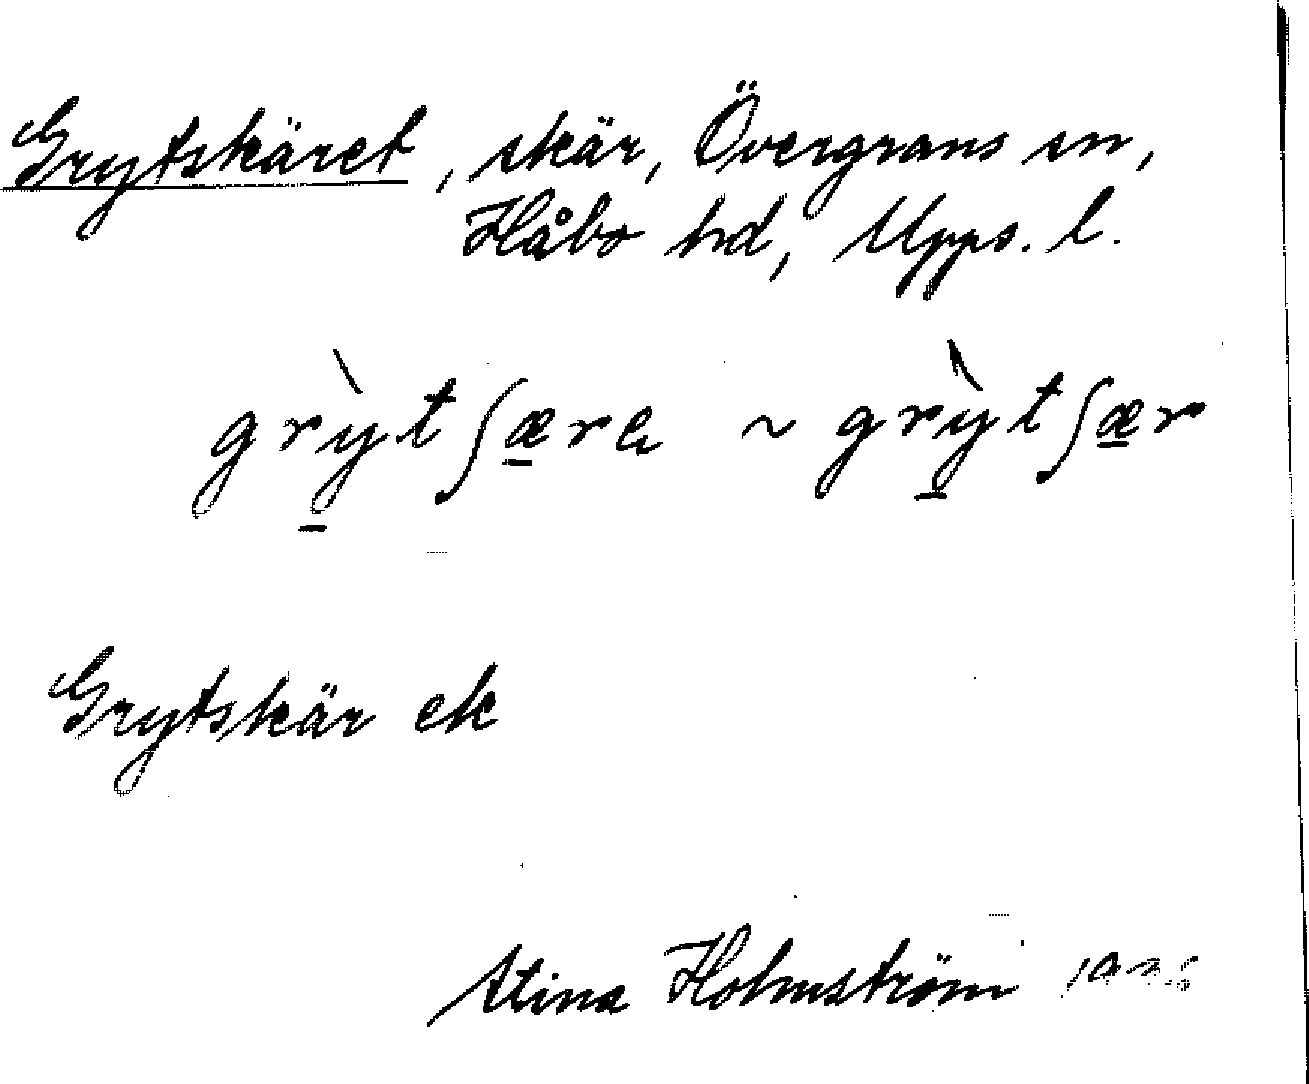 Grytskäret, skär, Övergrans sn,
Håbo hd, Upps. l.
grỳ̱tʃæ̱re ~ grỳ̱tʃæ̱r
Grytskär ek
Stina Holmström